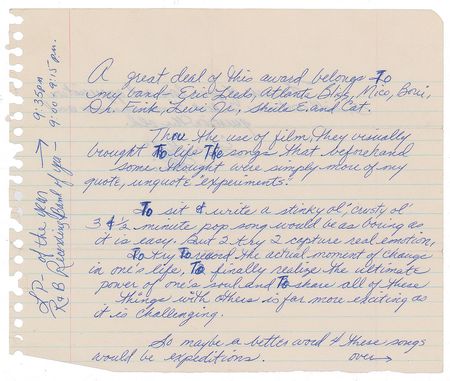 A great deal of this award belongs To
my band - Eric Leeds, Atlanta Bliss, Mico, Boni,
Dr. Fink, Levi Jr., Sheila E. and Cat.
Thru the use of film, they visually
brought To life The songs that beforehand
some thought were simply more of my
quote, unquote "experiments."
To sit & write a stinky ol', crusty ol'
3 & ½ minute pop song would be as boring as
it is easy. But 2 try 2 capture real emotion,
To try To record the actual moment of change
in one's life, To finally realize the ultimate
power of one's soul and To share all of these
things with others is far more exciting as
it is challenging.
So maybe a better word 4 these songs
would be expeditions. over →
LP - of the year → 9:35pm
R&B Recording Band of year - 9:00 - 9:15 pm.